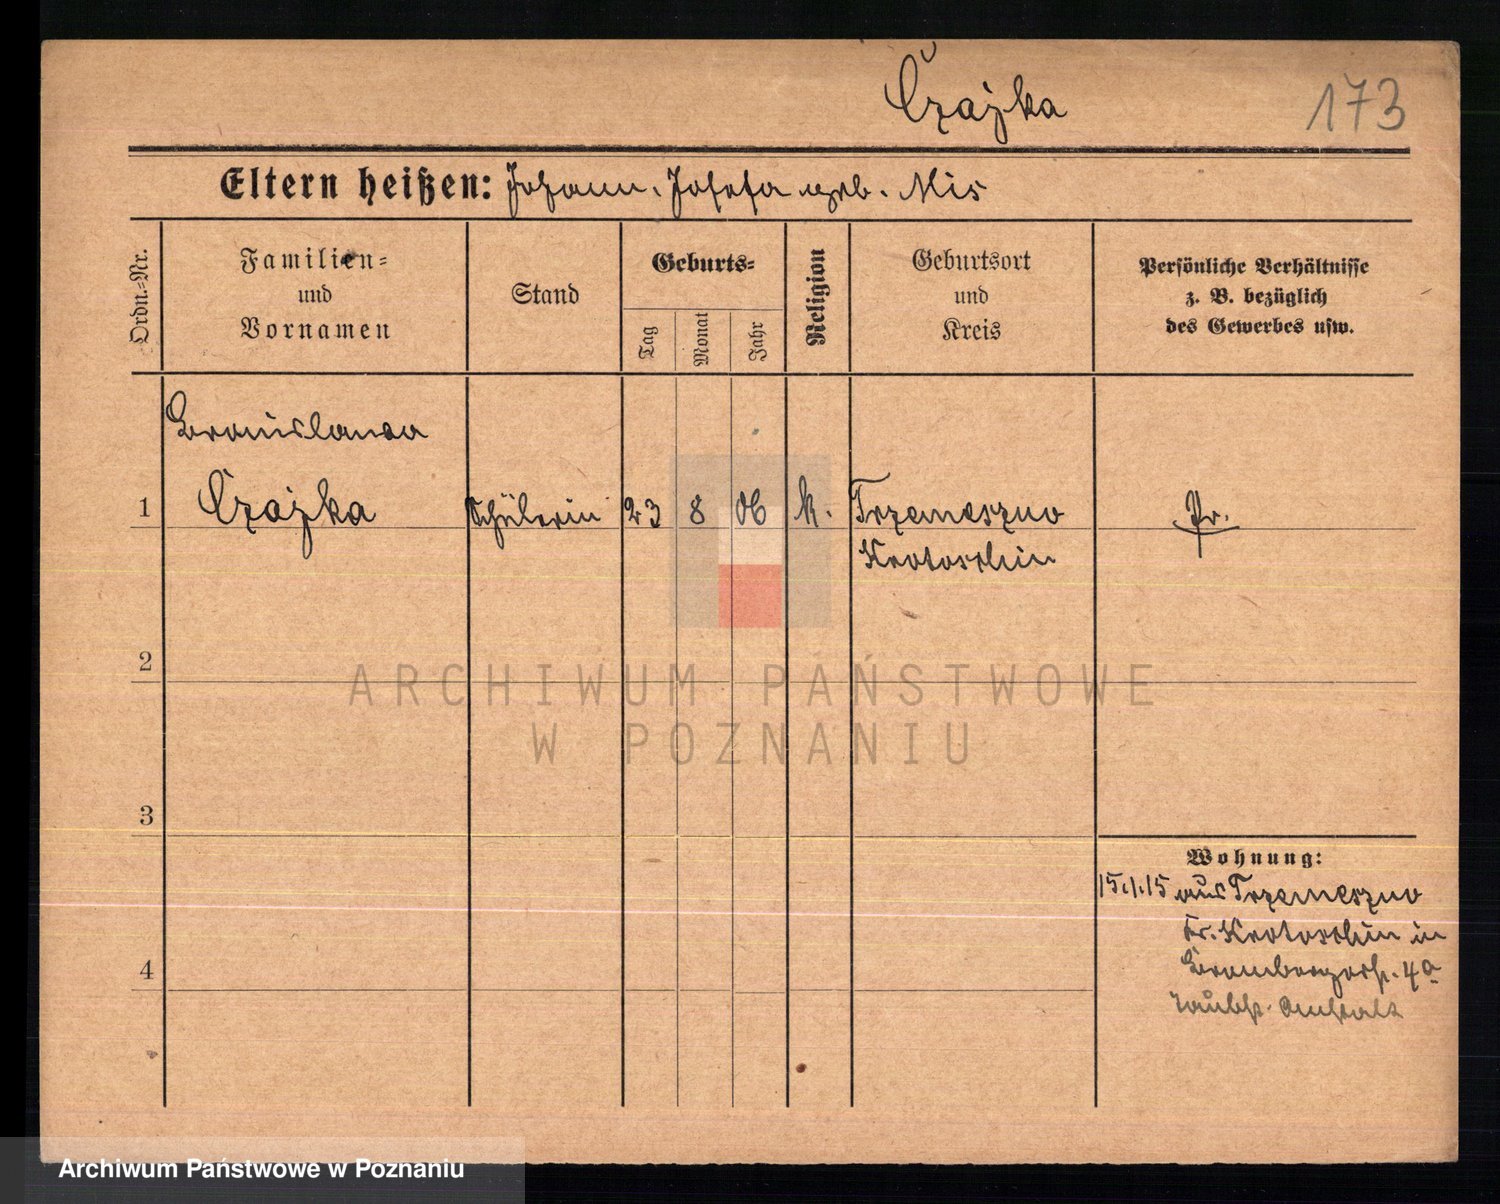 Czajka
173
Eltern heißen: Johann, Josefa geb. Mis
Ordn.-Nr.
Familien-
und
Vornamen
Stand
Geburts-
Tag
Monat
Jahr
Religion
Geburtsort
und
Kreis
Persönliche Verhältnisse
z. B. bezüglich
des Gewerbes usw.
Bronislawa
1 Czajka Schülerin 23 8 06 k. Trzemeszno Pr.
Krotoschin
2
ARCHIWUM PAŃSTWOWE
W POZNANIU
3
Wohnung:
15.1.15 aus Trzemeszno
Kr. Krotoschin in
Brombergerstr. 4a
4
Taubst. Anstalt
Archiwum Państwowe w Poznaniu